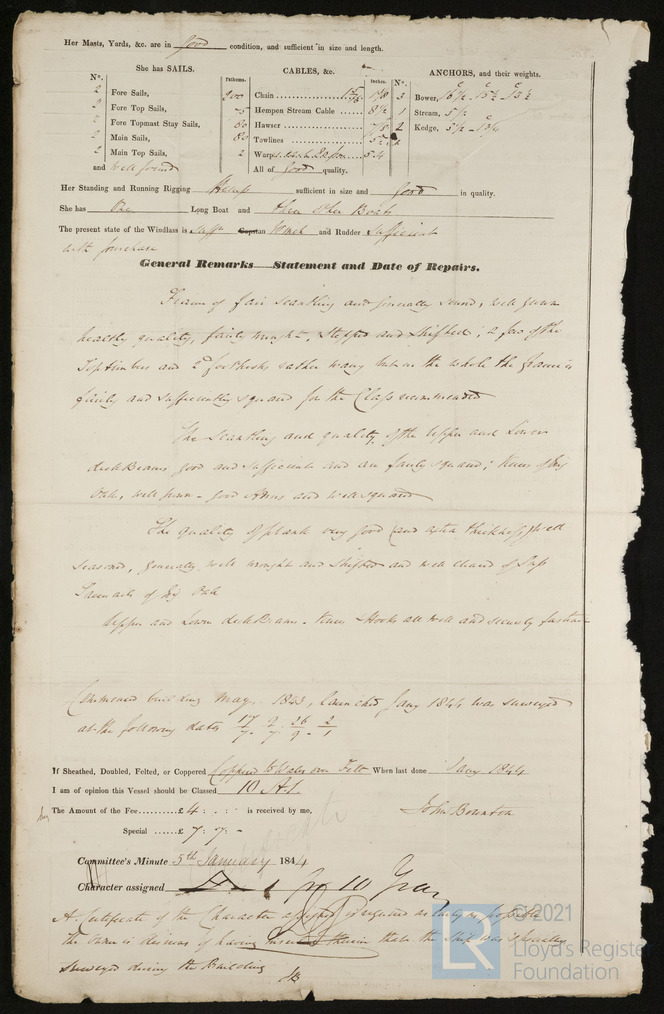 Her Masts, Yards, &c. are in good condition, and sufficient in size and length.
She has SAILS.
CABLES, &c.
ANCHORS, and their weights.
N°.
Fathoms.
Inches.
N°.
2 Fore Sails,
2 Fore Top Sails,
2 Fore Topmast Stay Sails,
2 Main Sails,
2 Main Top Sails,
and well found
Chain 200
Hempen Stream Cable 8½
Hawser 80
Towlines 80
Warps
All of good quality.
3 Bower,
1 Stream, 5½
2 Kedge,
Her Standing and Running Rigging Hemp sufficient in size and good in quality.
She has One Long Boat and three other Boats
The present state of the Windlass is Suffr Capstan Winch and Rudder Sufficient
with purchase
General Remarks—Statement and Date of Repairs.
Frame of fair scantling and generally sound, well grown
healthy quality, fairly wrought, Stepped and Shifted; 2 few of the
Toptimbers and 2d foothooks rather wany but on the whole the frame is
fairly and sufficiently squared for the Class recommended
The scantling and quality of the Upper and Lower
deck Beams good and sufficient and are fairly squared; Knees of Eng
Oak, well grown - good Arms and well squared
The quality of plank very good (and extra thickness) well
seasoned, generally well wrought and Shifted and well cleared of Sap
Treenails of Eng Oak
Upper and Lower deck Beams - Knees Hooks all well and securely fastened
Commenced building May 1843, launched Jany 1844 was surveyed
at the following dates 17/7 26/9 2/1
If Sheathed, Doubled, Felted, or Coppered Coppered to Wales over Felt When last done Jany 1844
I am of opinion this Vessel should be Classed 10 A1.
The Amount of the Fee £4 : . : - is received by me,
John Bownton
Special £ 7 : 7 : -
Committee's Minute 5th January 1844
Character assigned A 1 for 10 Years
A Certificate of the Character assigned is required as early as possible
the Owner is desirous of having inserted therein that the Ship was specially
surveyed during the Building
© 2021
LR
Lloyd's Register
Foundation